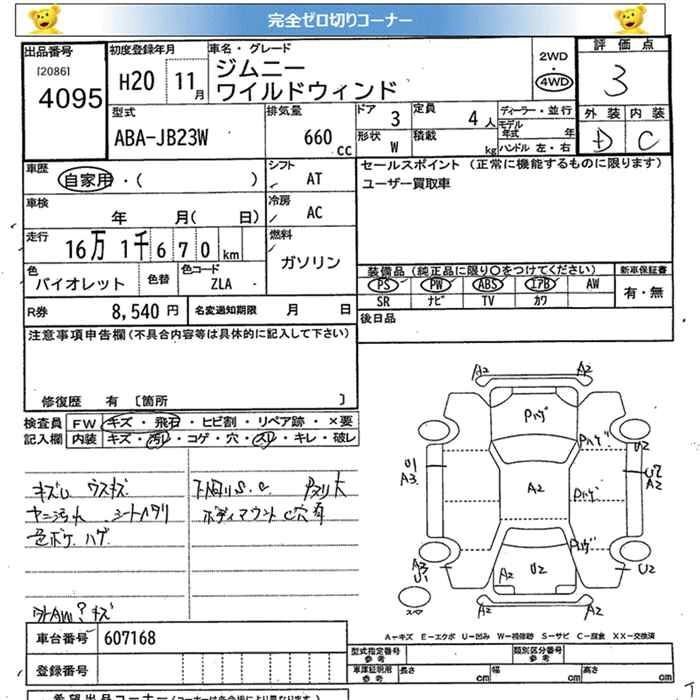 完全ゼロ切りコーナー
出品番号
[2086]
4095
初度登録年月
H20 11月
車名・グレード
ジムニー
ワイルドウィンド
2WD
・
4WD
評価点
3
外装 内装
D C
型式
ABA-JB23W
排気量
660 cc
ドア 3
形状 W
定員 4人
積載 kg
ディーラー・並行
モデル年式 年
ハンドル 左・右
車歴
自家用・( )
シフト
AT
車検
年 月( 日)
冷房
AC
走行
16万 1千 6 7 0 km
燃料
ガソリン
色
バイオレット
色替
色コード
ZLA
R券 8,540 円
名変通知期限 月 日
セールスポイント (正常に機能するものに限ります)
ユーザー買取車
装備品(純正品に限り○をつけてください)
PS PW ABS エアB AW
SR ナビ TV カワ
新車保証書
有・無
後日品
注意事項申告欄(不具合内容等は具体的に記入して下さい)
修復歴 有 [箇所 ]
検査員
記入欄
FW キズ・飛石・ヒビ割・リペア跡・×要
内装 キズ・汚レ・コゲ・穴・スレ・キレ・破レ
キズU ウスキズ
ヤニ汚れ シートヘタリ
色ボケ ハゲ
下回りS.C Pヌリ大
ボディマウントC穴有
外AW?キズ
A2 A2
Pハゲ
Pハゲ
U2
U1
A3
A2
Pハゲ
U2
A2
Pハゲ
A3
U1
A2
U2
U2
A2 A2
スペア
A=キズ E=エクボ U=凹み W=補修跡 S=サビ C=腐食 XX=交換済
車台番号 607168
登録番号
型式指定番号
参考
類別区分番号
参考
車庫証明用
参考
長さ cm
幅 cm
高さ cm
希望出品コーナー